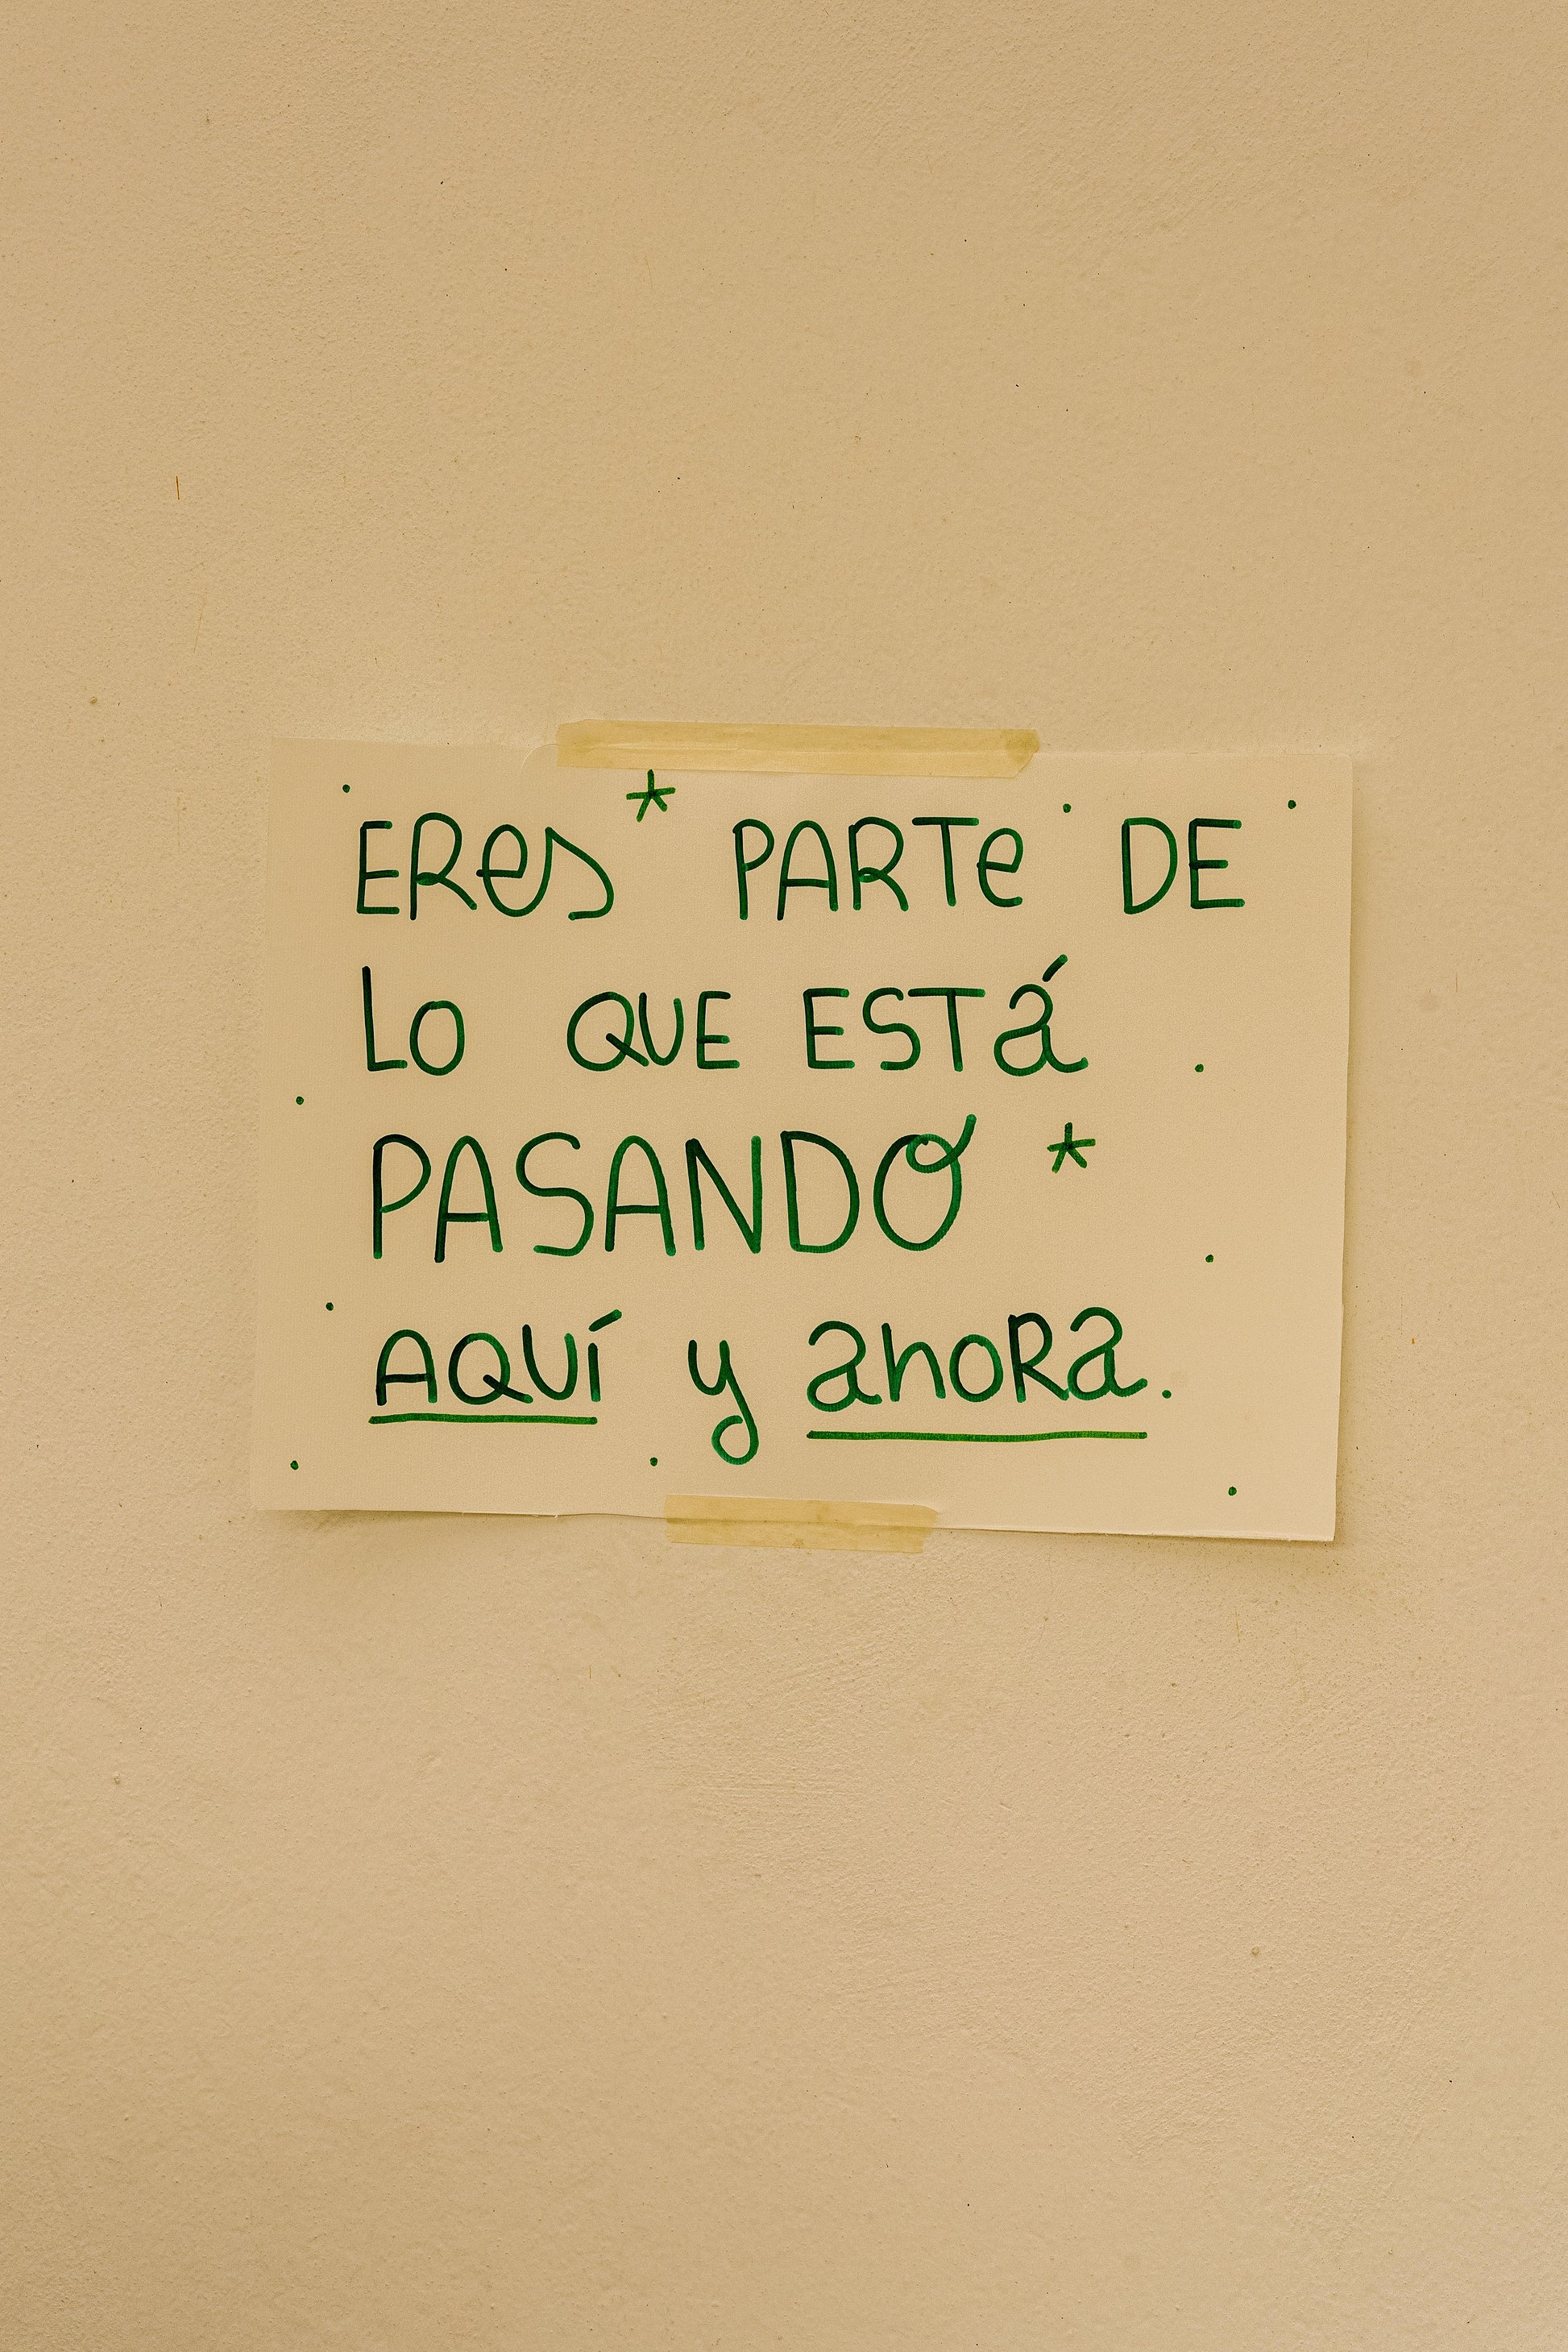 ERes* PARTe DE
LO QUE ESTá
PASANDO *
AQUí y ahoRa.